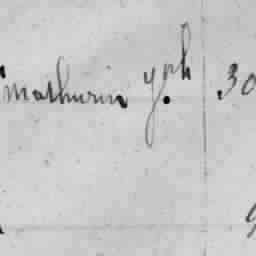 Mathurin Jph 30